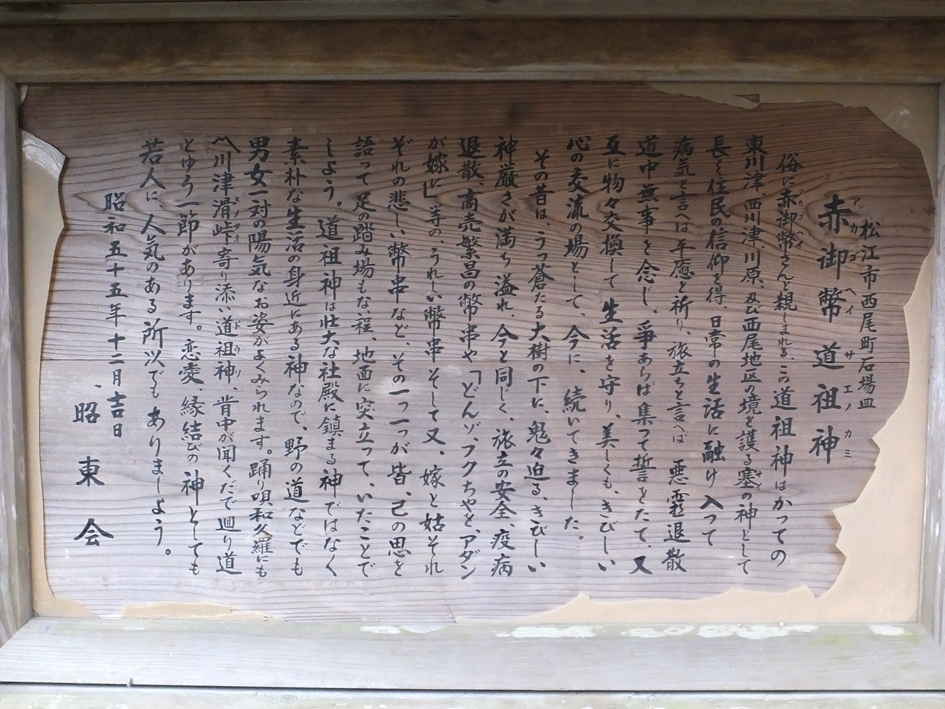 松江市西尾町石場皿
赤御幣 道祖神
アカゴヘイ サエノカミ
俗に赤御幣さんと親しまれる、この道祖神はかつての
東川津、西川津、川原、及び西尾地区の境を護る塞の神として
長く住民の信仰を得、日常の生活に融け入って
病気と言へば平癒と祈り、旅立と言へば 悪霊退散
道中無事を念じ、爭あらば集って誓をたて、又
互に物々交換して 生活を守り、美しくも、きびしい
心の交流の場として、今に、続いてきました。
その昔は、うっ蒼たる大樹の下に、鬼々迫る、きびしい
神厳さが満ち溢れ、今と同じく、旅立の安全、疫病
退散、商売繁昌の幣串や「どんゾ、フクちやを、アダン
が嫁に」等の、うれしい幣串そして又、嫁と姑それ
ぞれの悲しい幣串など、その一つ一つが皆、己の思を
語って足の踏み場もない程、地面に突立って、いたことで
しよう。道祖神は壮大な社殿に鎮まる神ではなく
素朴な生活の身近にある神なので、野の道などでも
男女一対の陽気なお姿がよくみられます。踊り唄和久羅にも
へ川津滑峠寄り添い道祖神、背中が聞くだで廻り道
とゆう一節があります。恋愛、縁結びの神としても
若人に人気のある所以でもありましよう。
昭和五十五年十二月吉日
昭東会